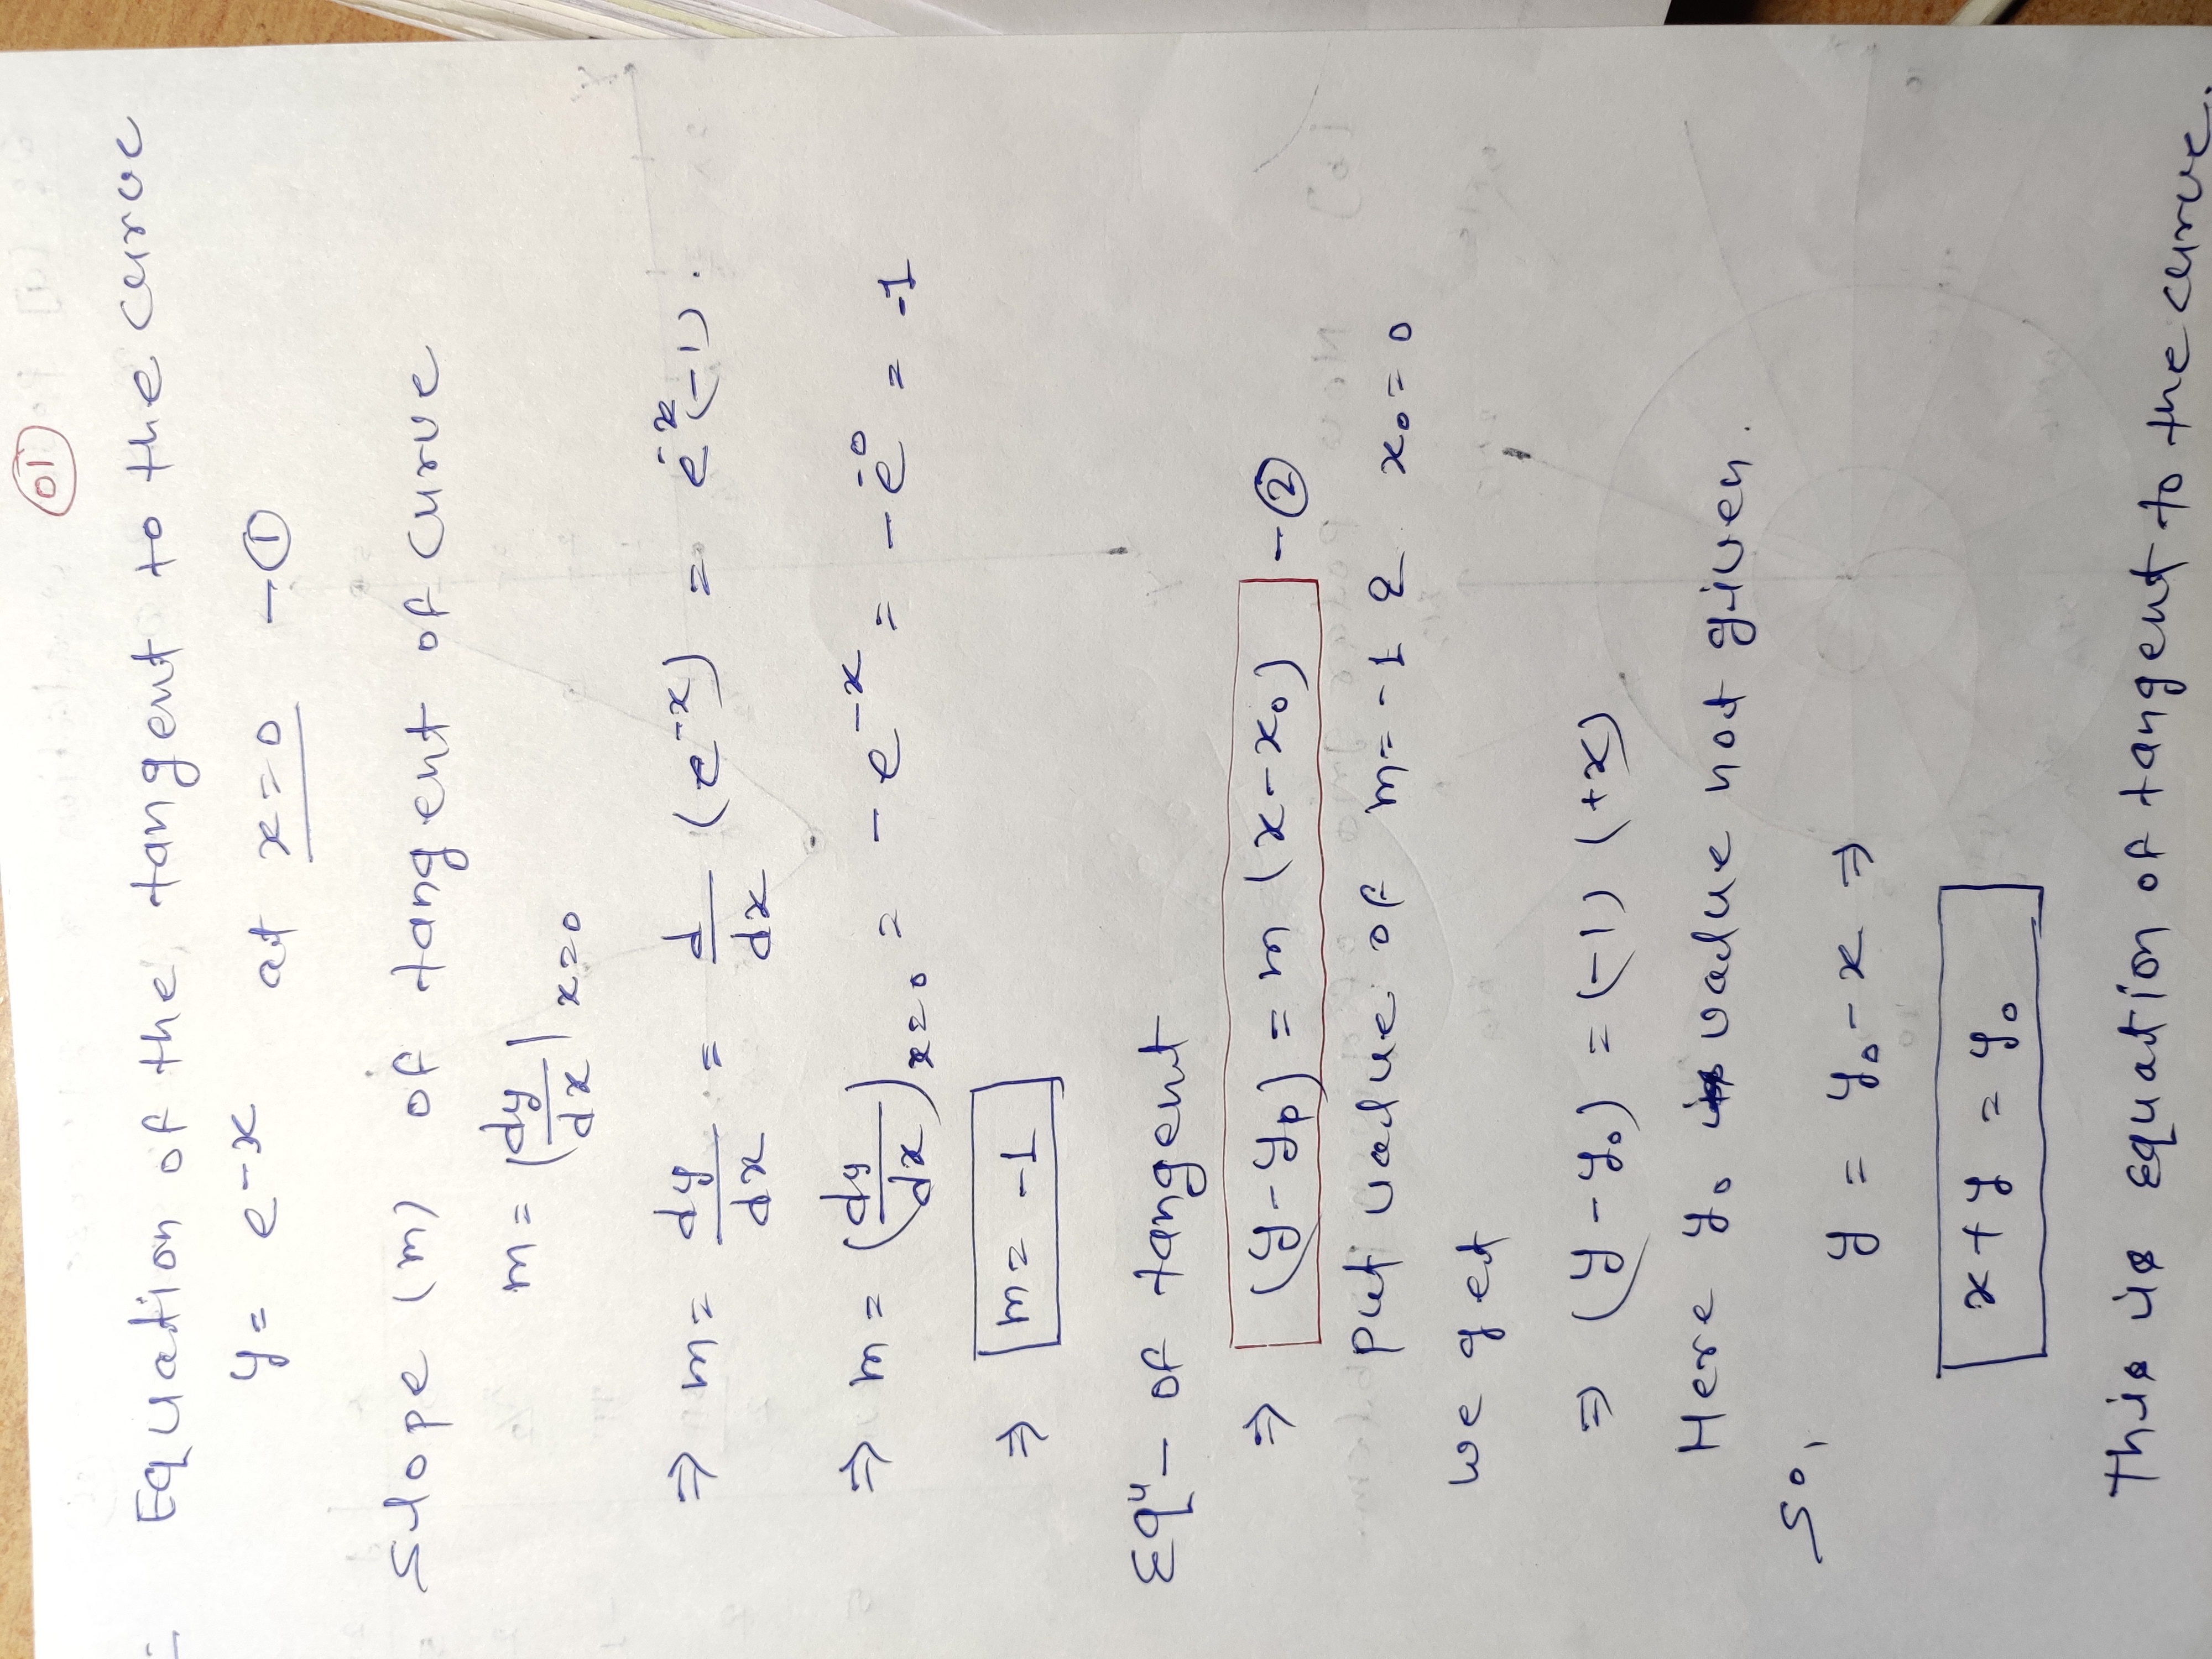 01
Equation of the tangent to the curve
y = e^-x at x=0 -①
Slope (m) of tangent of curve
m = (dy/dx|x=0
⇒ m = dy/dx = d/dx (e^-x) = e^-x (-1).
⇒ m = (dy/dx)x=0 = -e^-x = -e^-0 = -1
⇒ m = -1
Eqn- of tangent
⇒ (y-yp) = m (x-x₀) -②
put value of m=-1 & x₀=0
we get
⇒ (y-y₀) = (-1) (+x)
Here y₀ value not given.
So,
y = y₀-x ⇒
x+y = y₀
this is Equation of tangent to the curve.